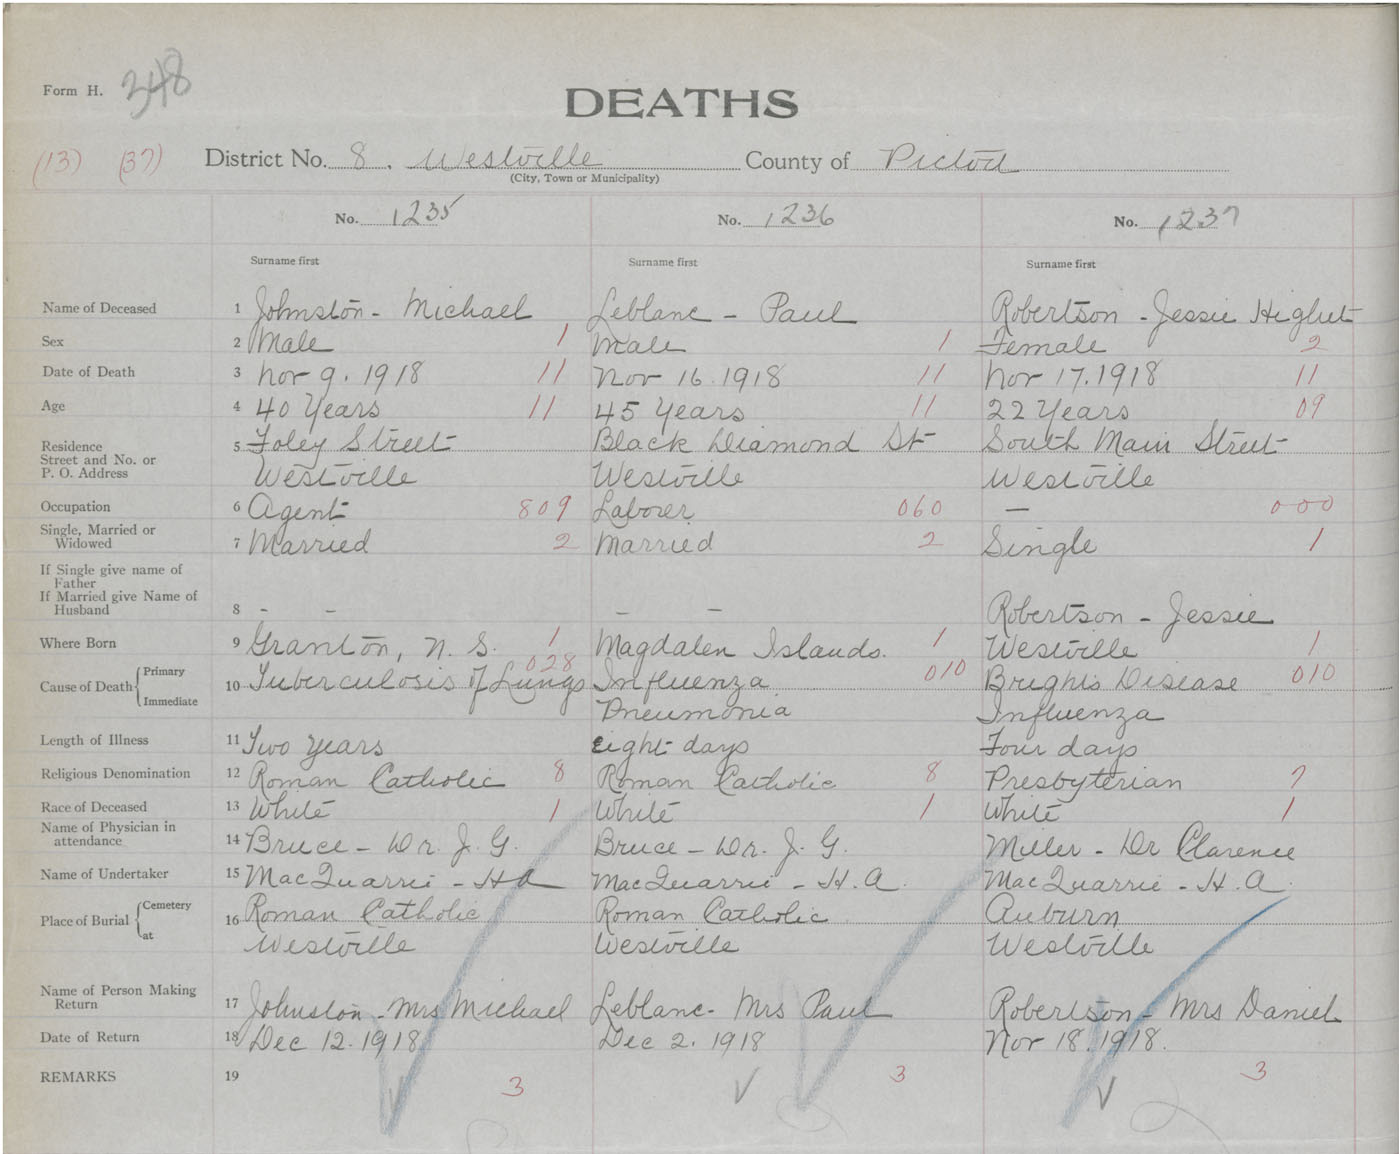 Form H. 348
DEATHS
(13) (37) District No. 8. Westville County of Pictou
(City, Town or Municipality)
No. 1235 No. 1236 No. 1237
Surname first Surname first Surname first
Name of Deceased 1 Johnston - Michael Leblanc - Paul Robertson - Jessie
Sex 2 Male 1 Male 1 Female 2
Date of Death 3 Nov 9. 1918 11 Nov 16. 1918 11 Nov 17. 1918 11
Age 4 40 Years 11 45 Years 11 22 Years 09
Residence
Street and No. or 5 Foley Street Black Diamond St South Main Street
P. O. Address Westville Westville Westville
Occupation 6 Agent 809 Laborer 060 — 000
Single, Married or
Widowed 7 Married 2 Married 2 Single 1
If Single give name of
Father
If Married give Name of
Husband 8 - - - - Robertson - Jessie
Where Born 9 Granton, N. S. 1 Magdalen Islands. 1 Westville 1
Cause of Death Primary 10 Tuberculosis of Lungs 028 Influenza 010 Brights Disease 010
Immediate Pneumonia Influenza
Length of Illness 11 Two years eight days Four days
Religious Denomination 12 Roman Catholic 8 Roman Catholic 8 Presbyterian 7
Race of Deceased 13 White 1 White 1 White 1
Name of Physician in
attendance 14 Bruce - Dr. J. G. Bruce - Dr. J. G. Miller - Dr Clarence
Name of Undertaker 15 MacQuarrie - H A MacQuarrie - H. A. MacQuarrie - H. A.
Place of Burial Cemetery 16 Roman Catholic Roman Catholic Auburn
at Westville Westville Westville
Name of Person Making
Return 17 Johnston - Mrs Michael Leblanc - Mrs Paul Robertson - Mrs Daniel
Date of Return 18 Dec 12. 1918 Dec 2. 1918 Nov 18. 1918.
REMARKS 19 3 3 3